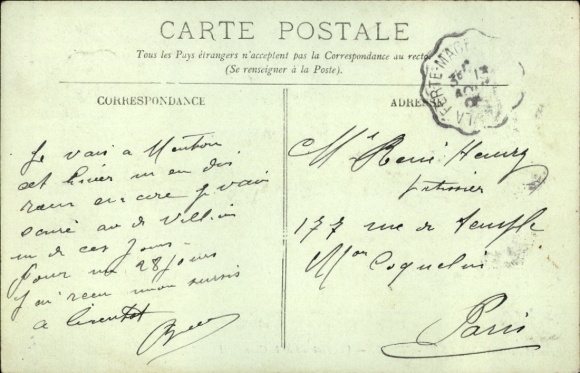 CARTE POSTALE
Tous les Pays étrangers n'acceptent pas la Correspondance au recto.
(Se renseigner à la Poste).
CORRESPONDANCE
ADRESSE
Je vais a Menton
cet hiver m en dis
rien encore je vais
au de
un de ces jours
pour un 28 jours
j'ai reçu mon sursis
a bientot
Mr René Henry
177 rue du Temple
Mon Coquelin
Paris
LA FERTE-MACE
13
AOUT